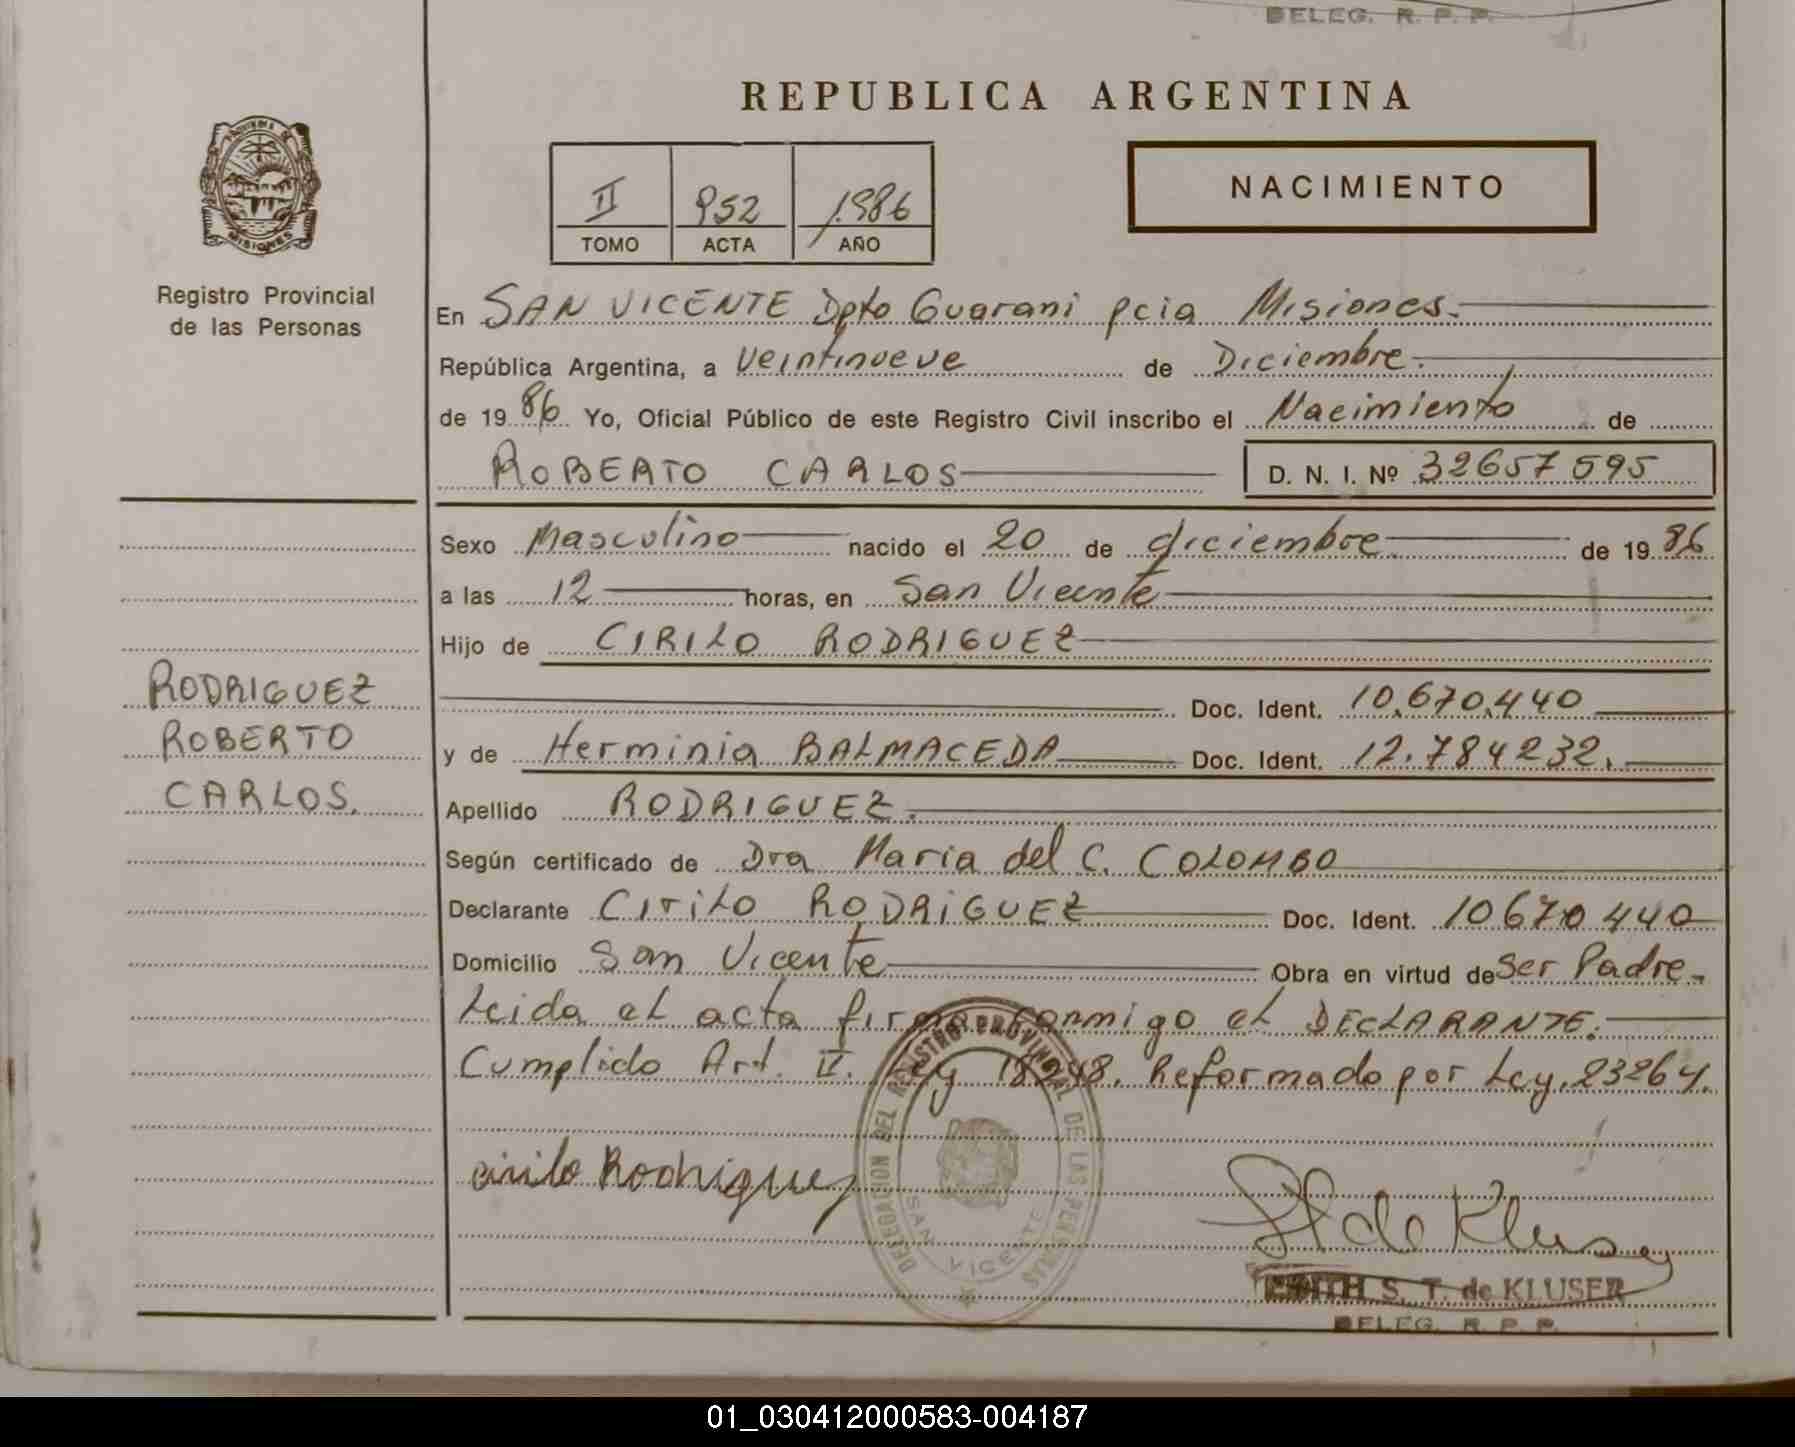 DELEG. R. P. P.
REPUBLICA ARGENTINA
PROVINCIA DE
MISIONES
Registro Provincial
de las Personas
II 952 1986
TOMO ACTA AÑO
NACIMIENTO
En SAN VICENTE Dpto Guarani pcia Misiones.
República Argentina, a Veintinueve de Diciembre.
de 1986 Yo, Oficial Público de este Registro Civil inscribo el Nacimiento de
ROBERTO CARLOS D. N. I. Nº 32657595
Sexo Masculino nacido el 20 de diciembre de 1986
a las 12 horas, en San Vicente
Hijo de CIRILO RODRIGUEZ
Doc. Ident. 10.670.440
y de Herminia BALMACEDA Doc. Ident. 12.784232.
Apellido RODRIGUEZ.
Según certificado de Dra Maria del C. COLOMBO
Declarante CIRILO RODRIGUEZ Doc. Ident. 10670440
Domicilio San Vicente Obra en virtud de Ser Padre.
Leida el acta firma conmigo el DECLARANTE.
Cumplido Art. II. Ley 18248. Reformado por Ley. 23264.
RODRIGUEZ
ROBERTO
CARLOS.
cirilo Rodriguez
DELEGACION DEL REGISTRO PROVINCIAL DE LAS PERSONAS
SAN VICENTE
de Kluser
EDITH S. T. de KLUSER
DELEG. R. P. P.
01_030412000583-004187